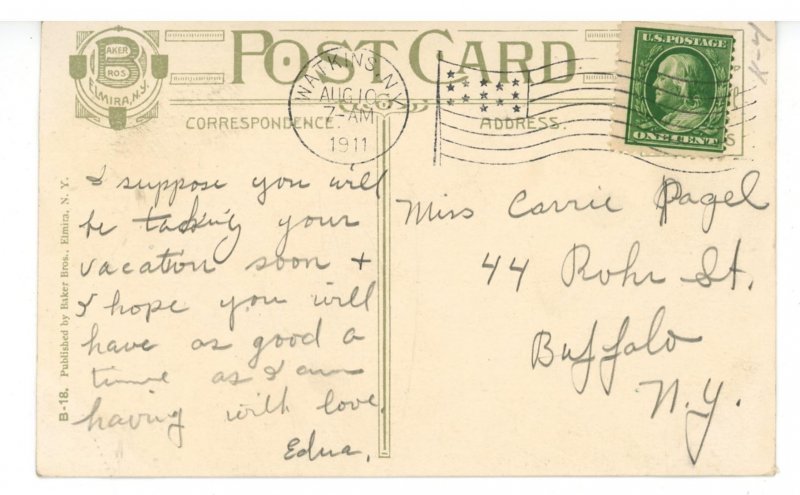 BAKER
B
BROS
ELMIRA, N.Y.
POST CARD
WATKINS, N.Y.
AUG 10
7-AM
1911
U.S. POSTAGE
ONE CENT
K-4
CORRESPONDENCE.
ADDRESS.
I suppose you will
be taking your
vacation soon +
I hope you will
have as good a
time as I am
having with love.
Edna.
Miss Carrie Pagel
44 Rohr St.
Buffalo
N.Y.
B-18. Published by Baker Bros., Elmira, N. Y.